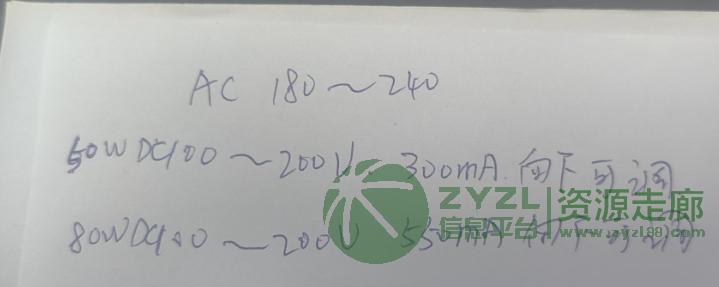 AC 180～240
50W DC100～200V、300mA.向下可调
80W DC100～200V 550mA 向下可调
ZYZL 资源走廊
信息平台 www.zyzl88.com